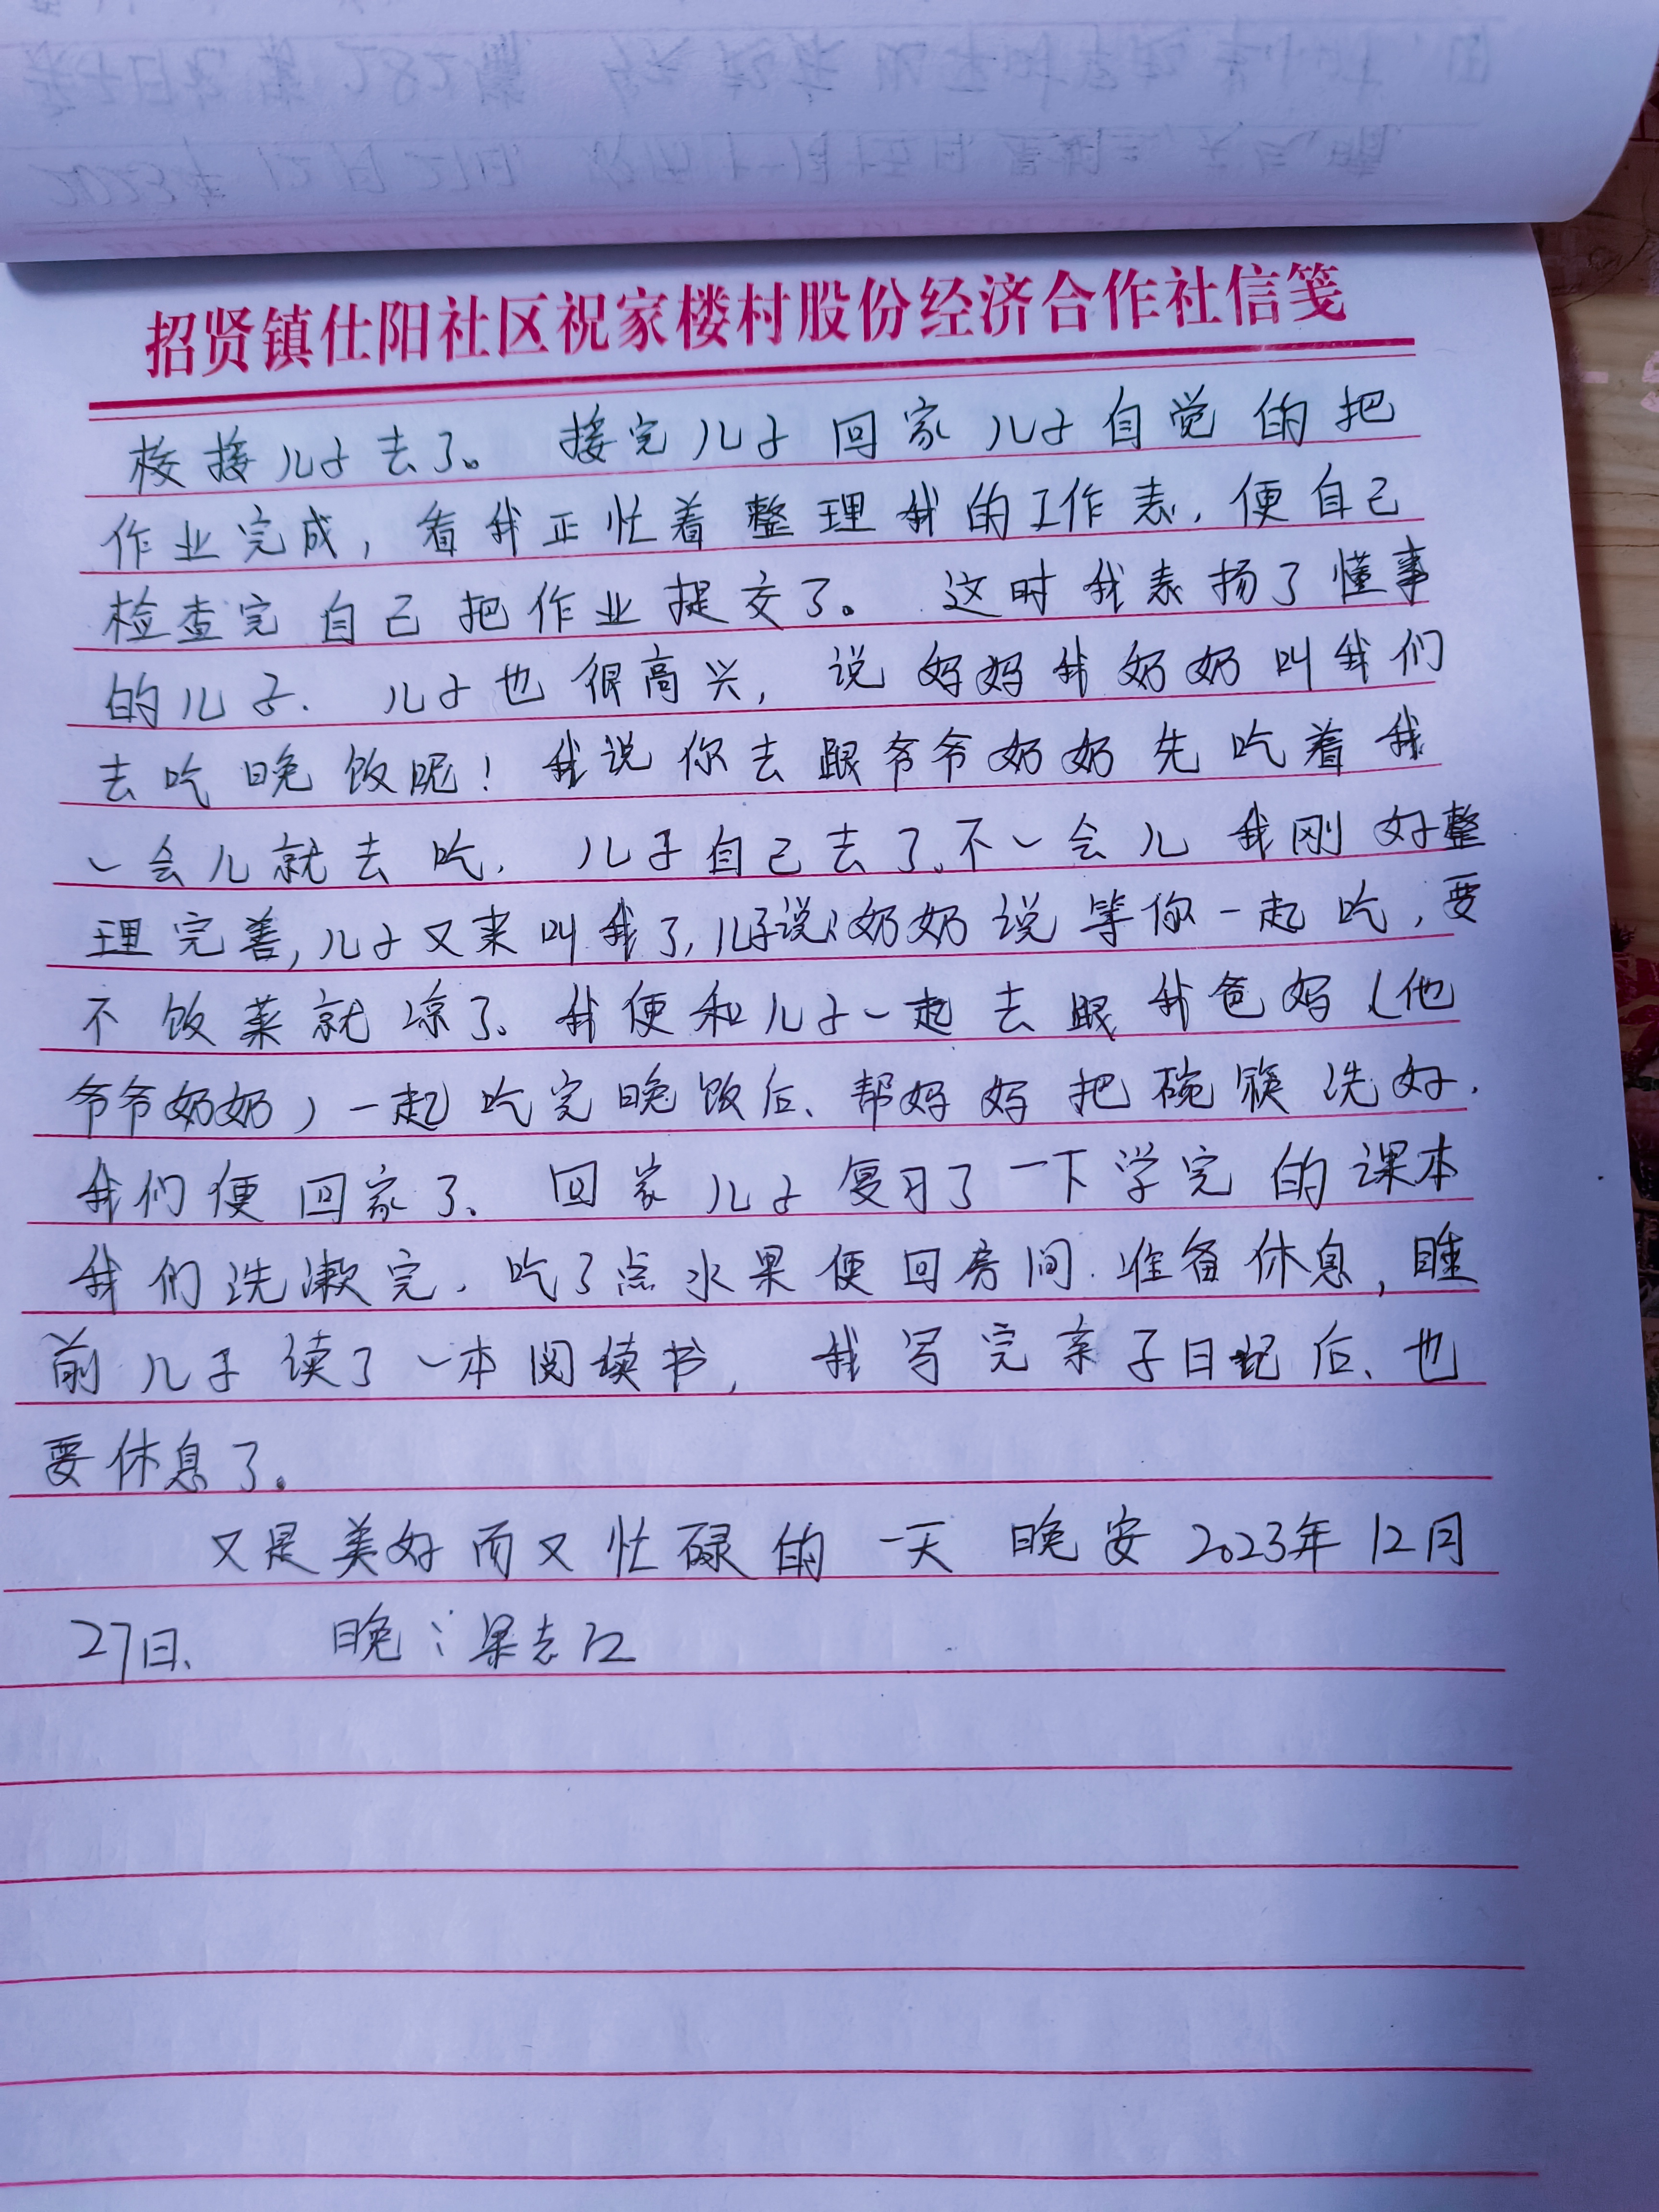 招贤镇仕阳社区祝家楼村股份经济合作社信笺
校接儿子去了。 接完儿子回家儿子自觉的把
作业完成，看我正忙着整理我的工作表，便自己
检查完自己把作业提交了。 这时我表扬了懂事
的儿子、儿子也很高兴，说妈妈我奶奶叫我们
去吃晚饭呢！我说你去跟爷爷奶奶先吃着我
一会儿就去吃，儿子自己去了、不一会儿我刚好整
理完善，儿子又来叫我了，儿子说：奶奶说等你一起吃，要
不饭菜就凉了、我便和儿子一起去跟我爸妈（他
爷爷奶奶）一起吃完晚饭后、帮妈妈把碗筷洗好、
我们便回家了、回家儿子复习了一下学完的课本
我们洗漱完、吃了点水果便回房间、准备休息，睡
前儿子读了一本阅读书，我写完亲子日记后、也
要休息了。
又是美好而又忙碌的一天 晚安 2023年12月
27日、 晚：梁志江